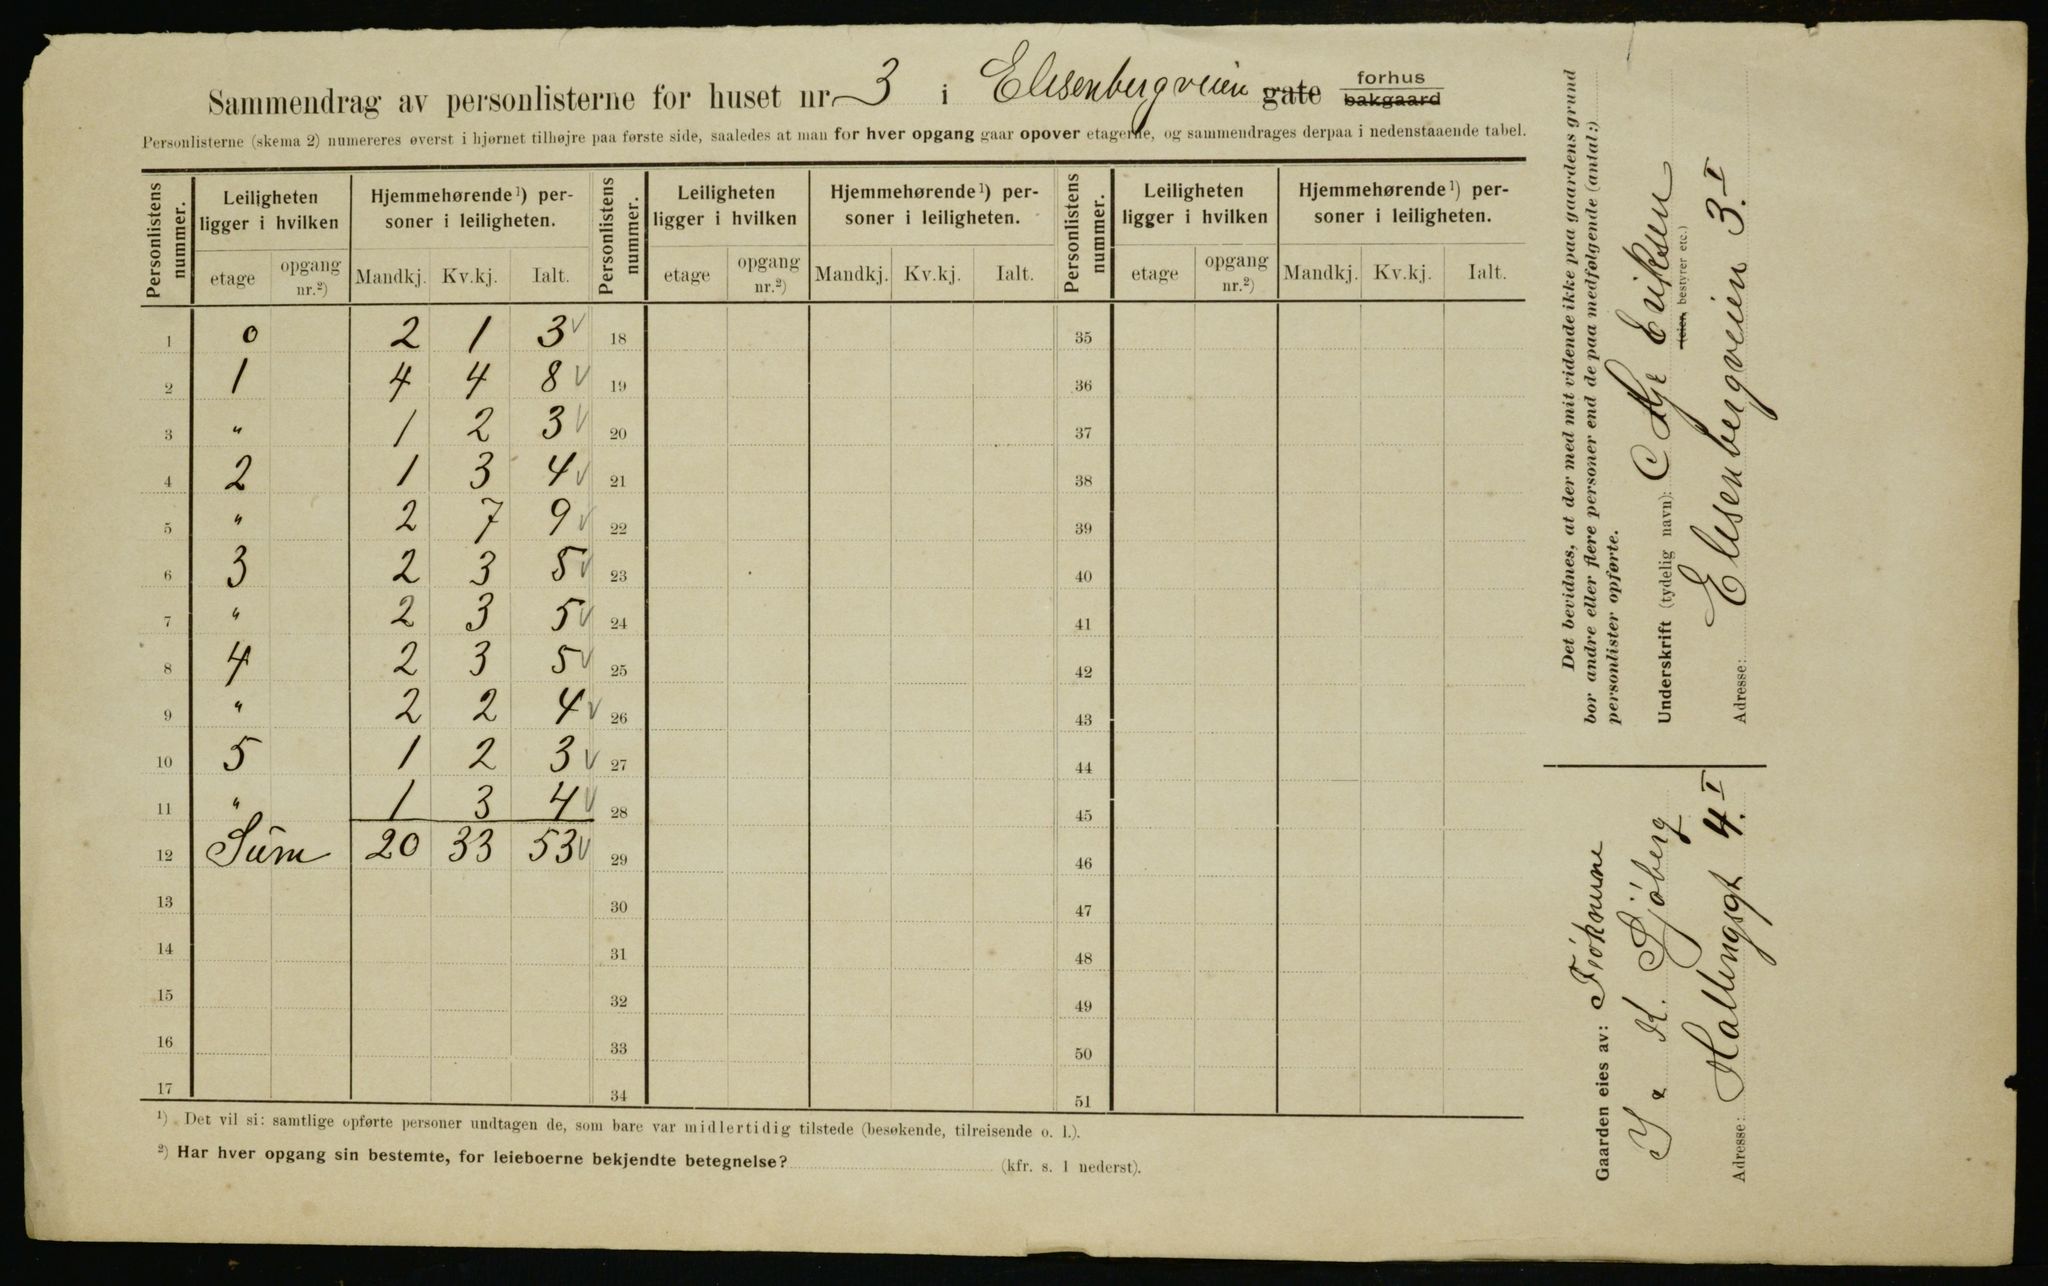 Sammendrag av personlisterne for huset nr. 3 i Elisenbergveien gate forhus bakgaard
Personlisterne (skema 2) numereres øverst i hjørnet tilhøjre paa første side, saaledes at man for hver opgang gaar opover etagerne, og sammendrages derpaa i nedenstaaende tabel.
Personlistens nummer. Leiligheten ligger i hvilken Hjemmehørende ¹) personer i leiligheten. Personlistens nummer. Leiligheten ligger i hvilken Hjemmehørende ¹) personer i leiligheten. Personlistens nummer. Leiligheten ligger i hvilken Hjemmehørende ¹) personer i leiligheten.
etage opgang nr.²) Mandkj. Kv.kj. Ialt. etage opgang nr.²) Mandkj. Kv.kj. Ialt. etage opgang nr.²) Mandkj. Kv.kj. Ialt.
1 0 2 1 3 √ 18 35
2 1 4 4 8 √ 19 36
3 " 1 2 3 √ 20 37
4 2 1 3 4 √ 21 38
5 " 2 7 9 √ 22 39
6 3 2 3 5 √ 23 40
7 " 2 3 5 √ 24 41
8 4 2 3 5 √ 25 42
9 " 2 2 4 √ 26 43
10 5 1 2 3 √ 27 44
11 " 1 3 4 √ 28 45
12 Sum 20 33 53 √ 29 46
13 30 47
14 31 48
15 32 49
16 33 50
17 34 51
¹) Det vil si: samtlige opførte personer undtagen de, som bare var midlertidig tilstede (besøkende, tilreisende o. l.).
²) Har hver opgang sin bestemte, for leieboerne bekjendte betegnelse? (kfr. s. 1 nederst).
Det bevidnes, at der med mit vidende ikke paa gaardens grund
bor andre eller flere personer end de paa medfølgende (antal:)
personlister opførte.
Underskrift (tydelig navn): Eriksen
(eier, bestyrer etc.)
Adresse: Elisenbergveien 3.I
Gaarden eies av: Frøknene
K. Sjöberg
Adresse: Hallingsgt 4.I